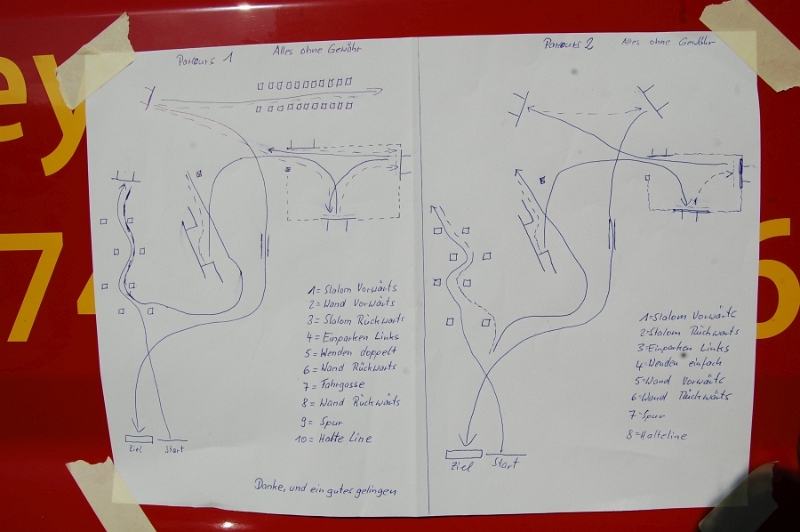 ey
74
6
Parcours 1
Alles ohne Gewähr
1= Slalom Vorwärts
2= Wand Vorwärts
3= Slalom Rückwärts
4= Einparken Links
5= Wenden doppelt
6= Wand Rückwärts
7= Fahrgasse
8= Wand Rückwärts
9= Spur
10= Halte Line
Ziel
Start
Danke, und ein gutes gelingen
Parcours 2
Alles ohne Gewähr
1=Slalom Vorwärts
2=Slalom Rückwärts
3=Einparken Links
4=Wenden einfach
5=Wand Vorwärts
6=Wand Rückwärts
7=Spur
8=Halteline
Ziel
Start